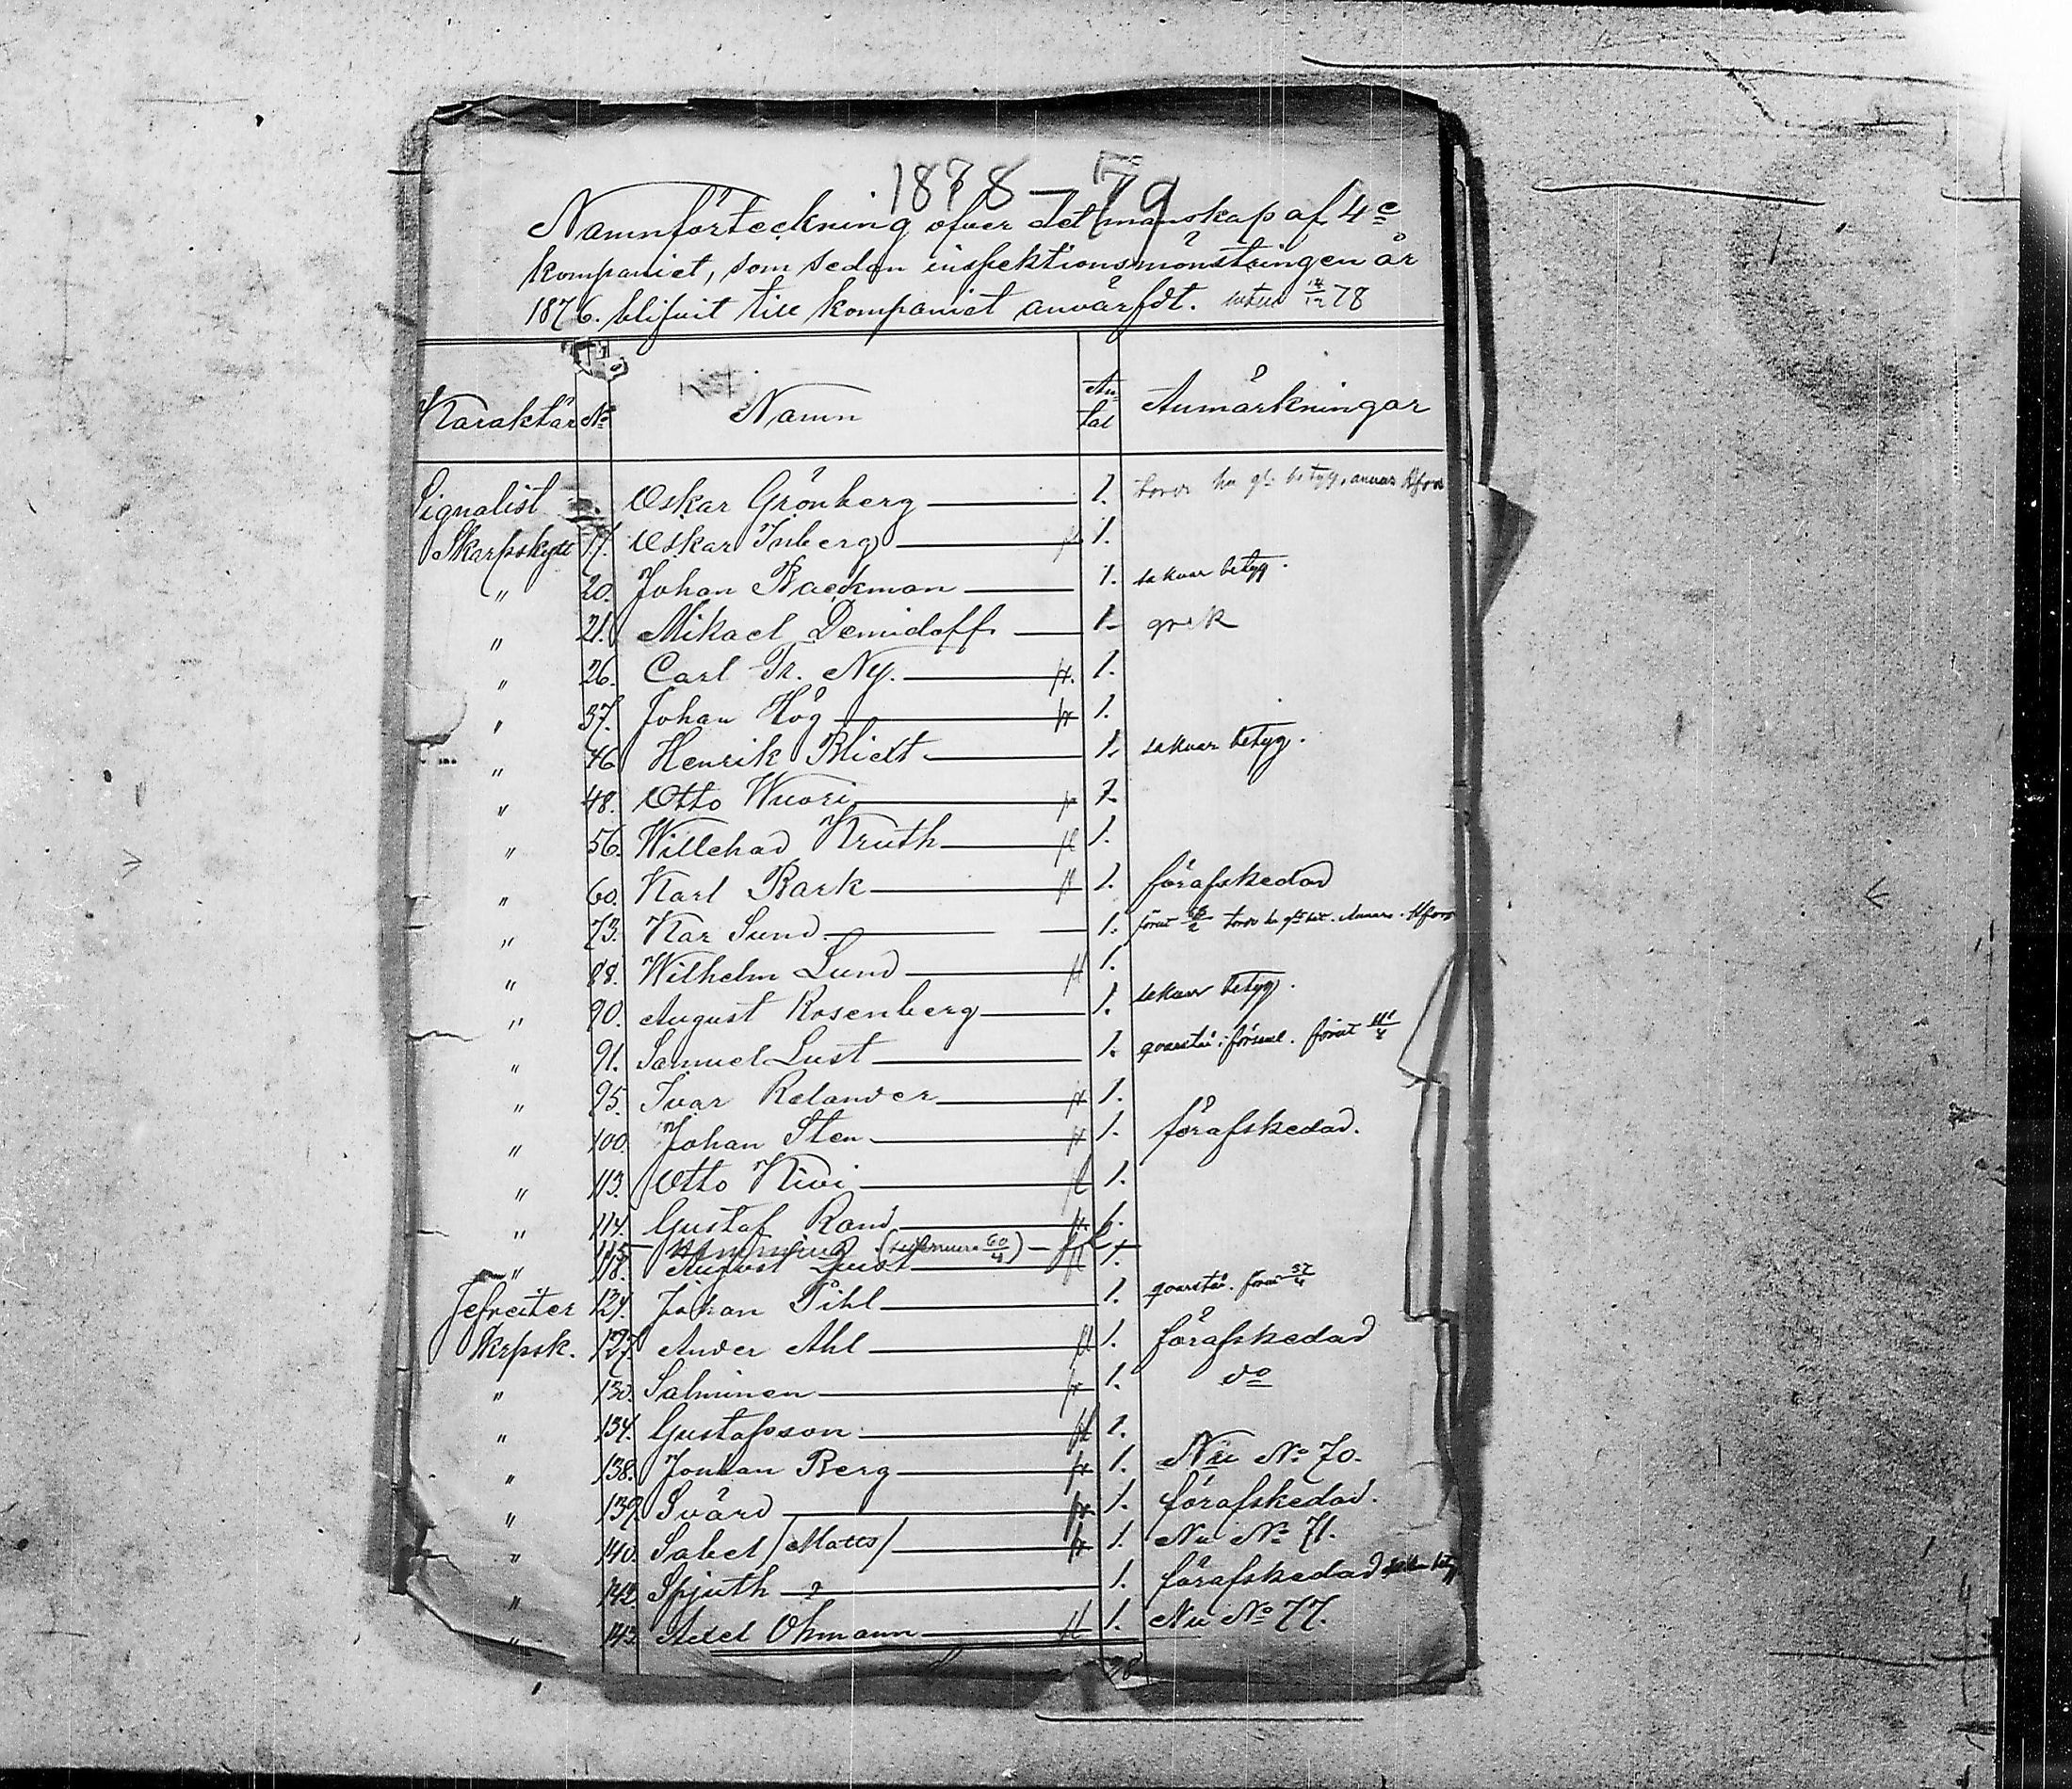 1878–79
Namnförteckning öfver det manskap af 4e
kompaniet, som sedan inspektionsmönstringen år
1876. blifvit till kompaniet anvärfdt. 78
Karaktär No Namn Antal Anmärkningar
Signalist Oskar Grönberg 1. betyg,
Skarpskytt 17. Oskar Inberg 1.
" 20. Johan Backman 1. saknar betyg.
" 21. Mikael Demidoff 1. grek
" 26. Carl Fr. Ny. fr. 1.
" 37. Johan Hög fr 1.
" 46 Henrik Blidt 1. saknar betyg.
" 48. Otto Wuori fr 1.
" 56. Willehad Kruth fl 1.
" 60. Karl Bark fl 1. förafskedad
" 73. Kar Sund 1. förut
" 88. Wilhelm Lund fl 1.
" 90. August Rosenberg 1. saknar betyg.
" 91. Samuel Lust 1. qvarstå i förut
" 95. Ivar Relander fr 1.
" 100. Johan Sten fr 1. förafskedad.
" 113. Otto Kivi fl 1.
" 114. Gustaf Rand fr. 1.
115 60/4
" 118. August Qvist fl 1.
Jefreiter 124. Johan Pihl 1. qvarstå. förut 37/4
Skrpsk. 127. Ander Ahl fl 1. förafskedad
" 130. Salminen fr 1. do
" 134. Gustafsson fl 1.
" 138. Jonhan Berg fr 1. Nu No 70.
" 139. Svärd fr 1. förafskedad.
" 140. Sabel /Matts/ fr 1. Nu No 71.
" 142. Spjuth ? 1. förafskedad
" 143. Axel Öhmann fl 1. Nu No 77.
28